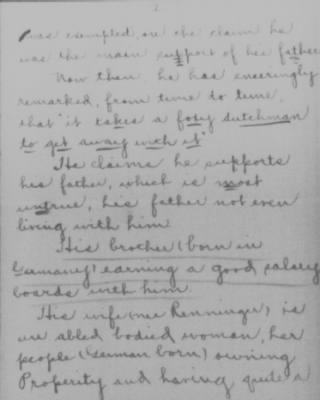 2
was exempted, on the claim he
was the main support of his father
Now then, he has sneeringly
remarked, from time to time,
that "it takes a foxy dutchman
to get away with it"
He claims he supports
his father, which is most
untrue, his father not even
living with him
His brother (born in
Germany) earning a good salary
boards with him.
His wife (nee Renninger) is
an abled bodied woman, her
people (German born) owning
Properity and having quite a